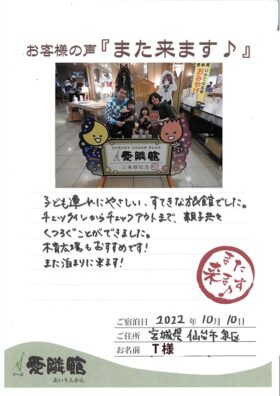 お客様の声『また来ます♪』
愛隣館
ご来館記念
子ども連れにやさしい、すてきな旅館でした。
チェックインからチェックアウトまで、親子共々
くつろぐことができました。
木育広場もおすすめです!
また泊まりに来ます!
また
来ます
ご宿泊日 2022年10月10日
ご住所 宮城県 仙台市 泉区
お名前 T様
愛隣館
あいりんかん